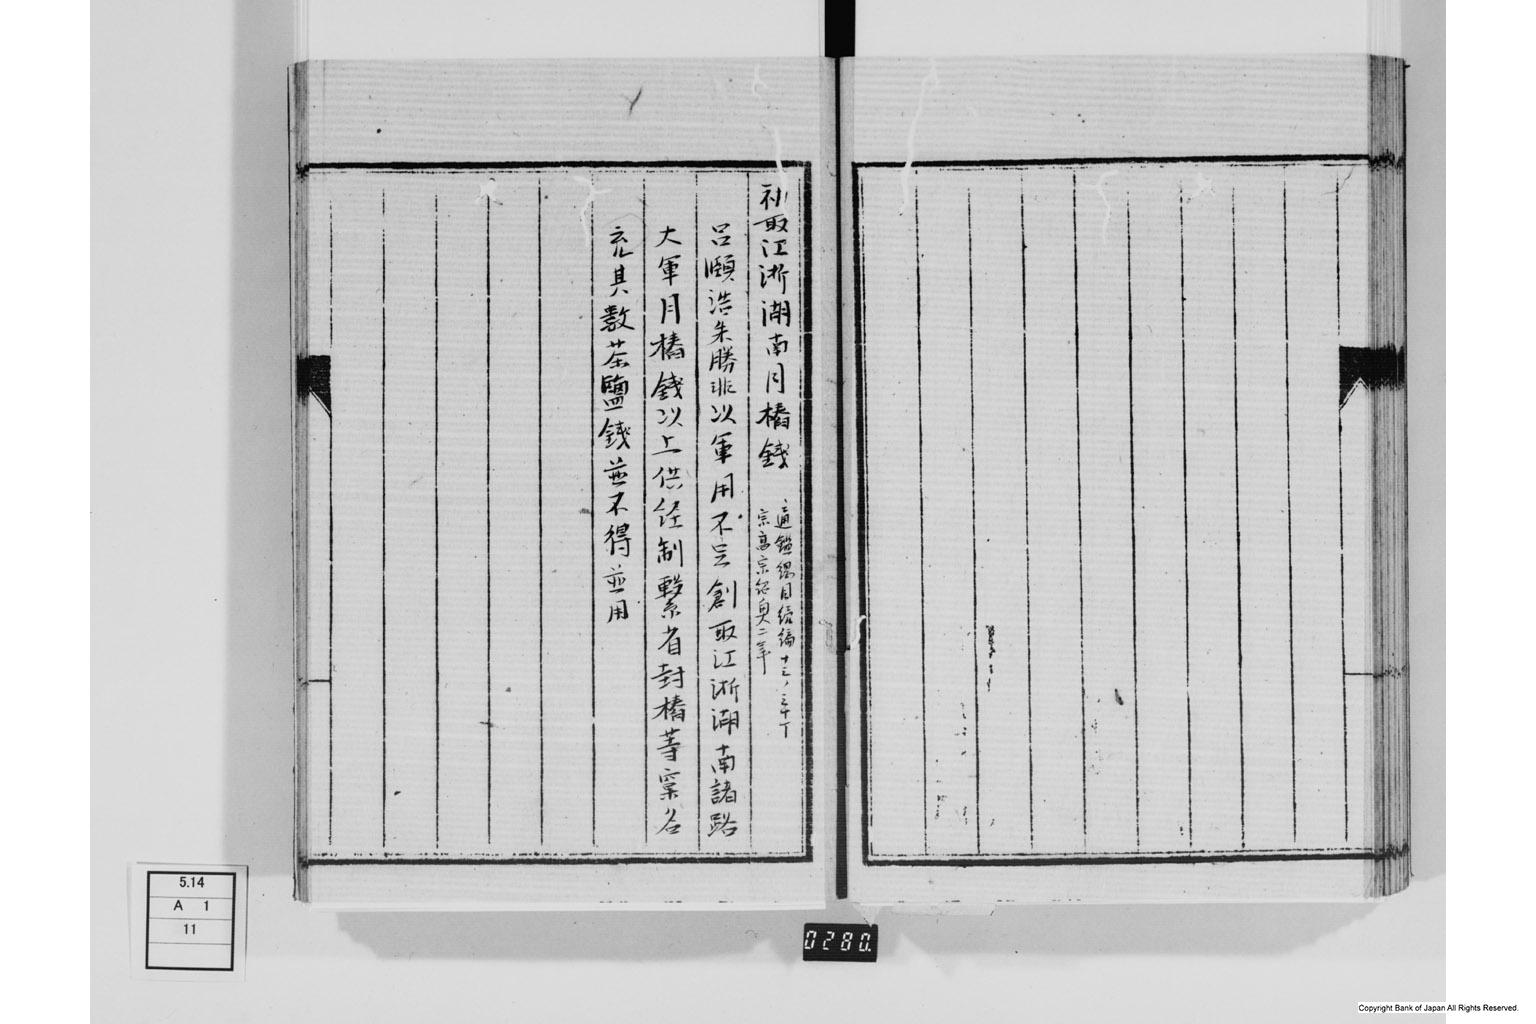 初取江浙湖南月樁錢
通鑑綱目続編十三ノ三十丁
宗高宗紹興二年
呂頤浩朱勝非以軍用不足創取江浙湖南諸路
大軍月樁錢以上供経制繋省封樁等窠名
充其数茶鹽錢並不得並用
5.14
A 1
11
0280.
Copyright Bank of Japan All Rights Reserved.